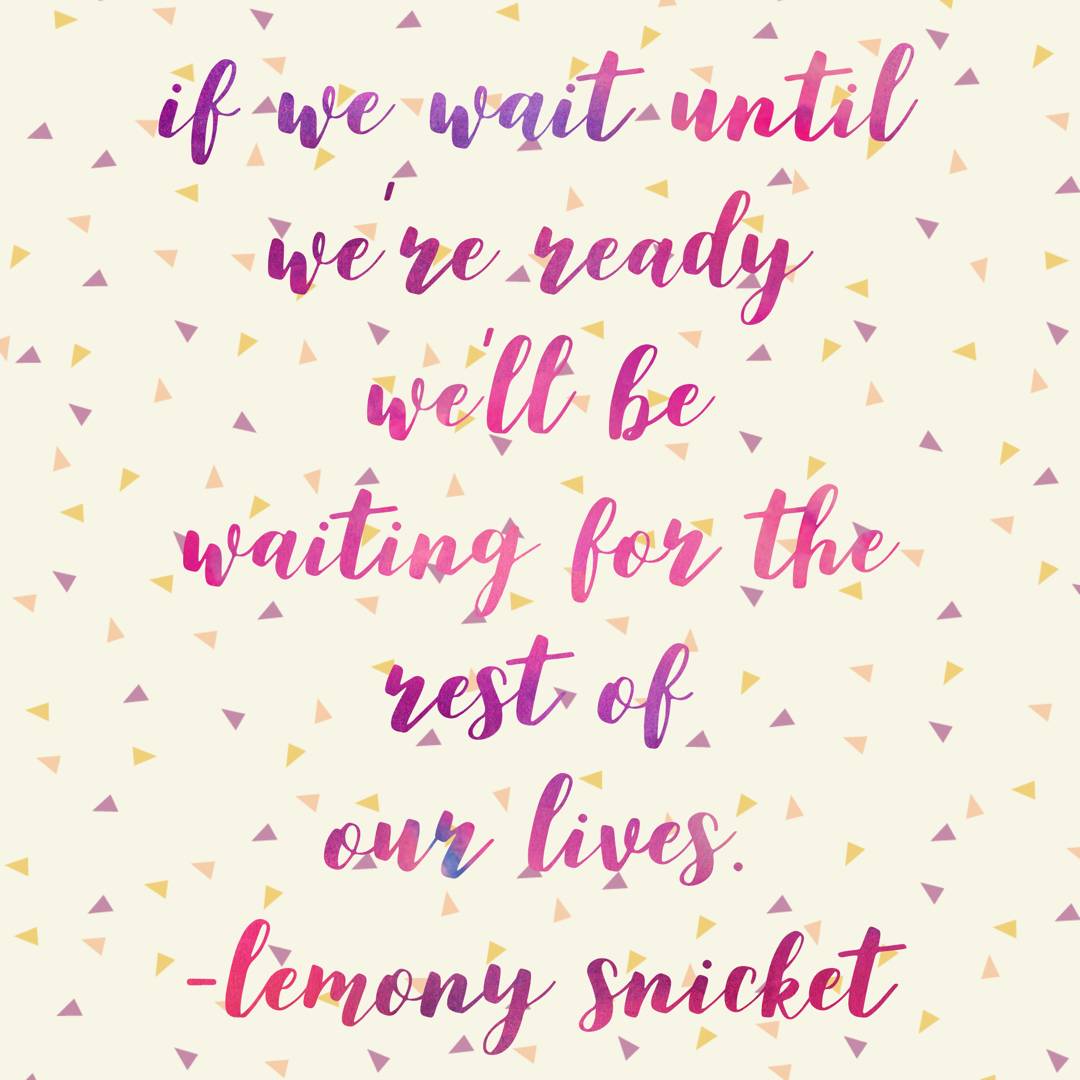 if we wait until
we're ready
we'll be
waiting for the
rest of
our lives.
-lemony snicket